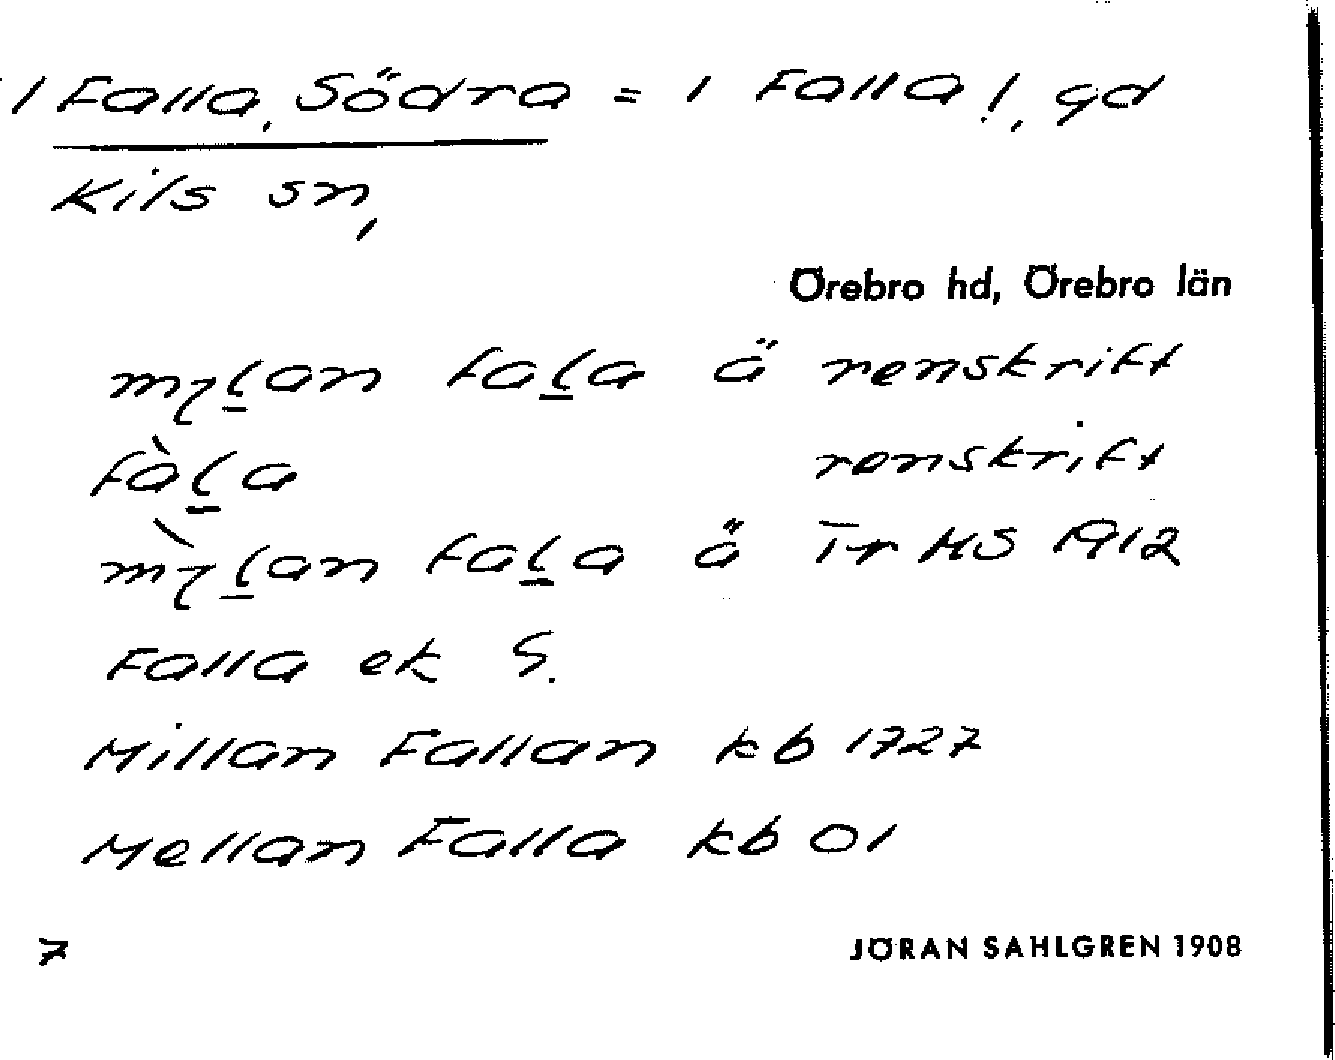 / Falla, Södra = / Falla !, gd
Kils sn,
Örebro hd, Örebro län
fala ä renskrift
fàla renskrift
fala ä Tr MS 1912
Falla ek S.
Millan Fallan kb 1727
Mellan Falla kb 01
7 JÖRAN SAHLGREN 1908